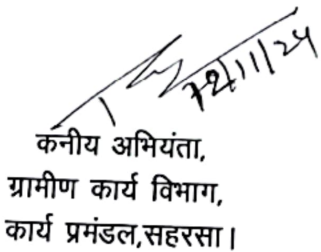 कनीय अभियंता,
ग्रामीण कार्य विभाग,
कार्य प्रमंडल,सहरसा।